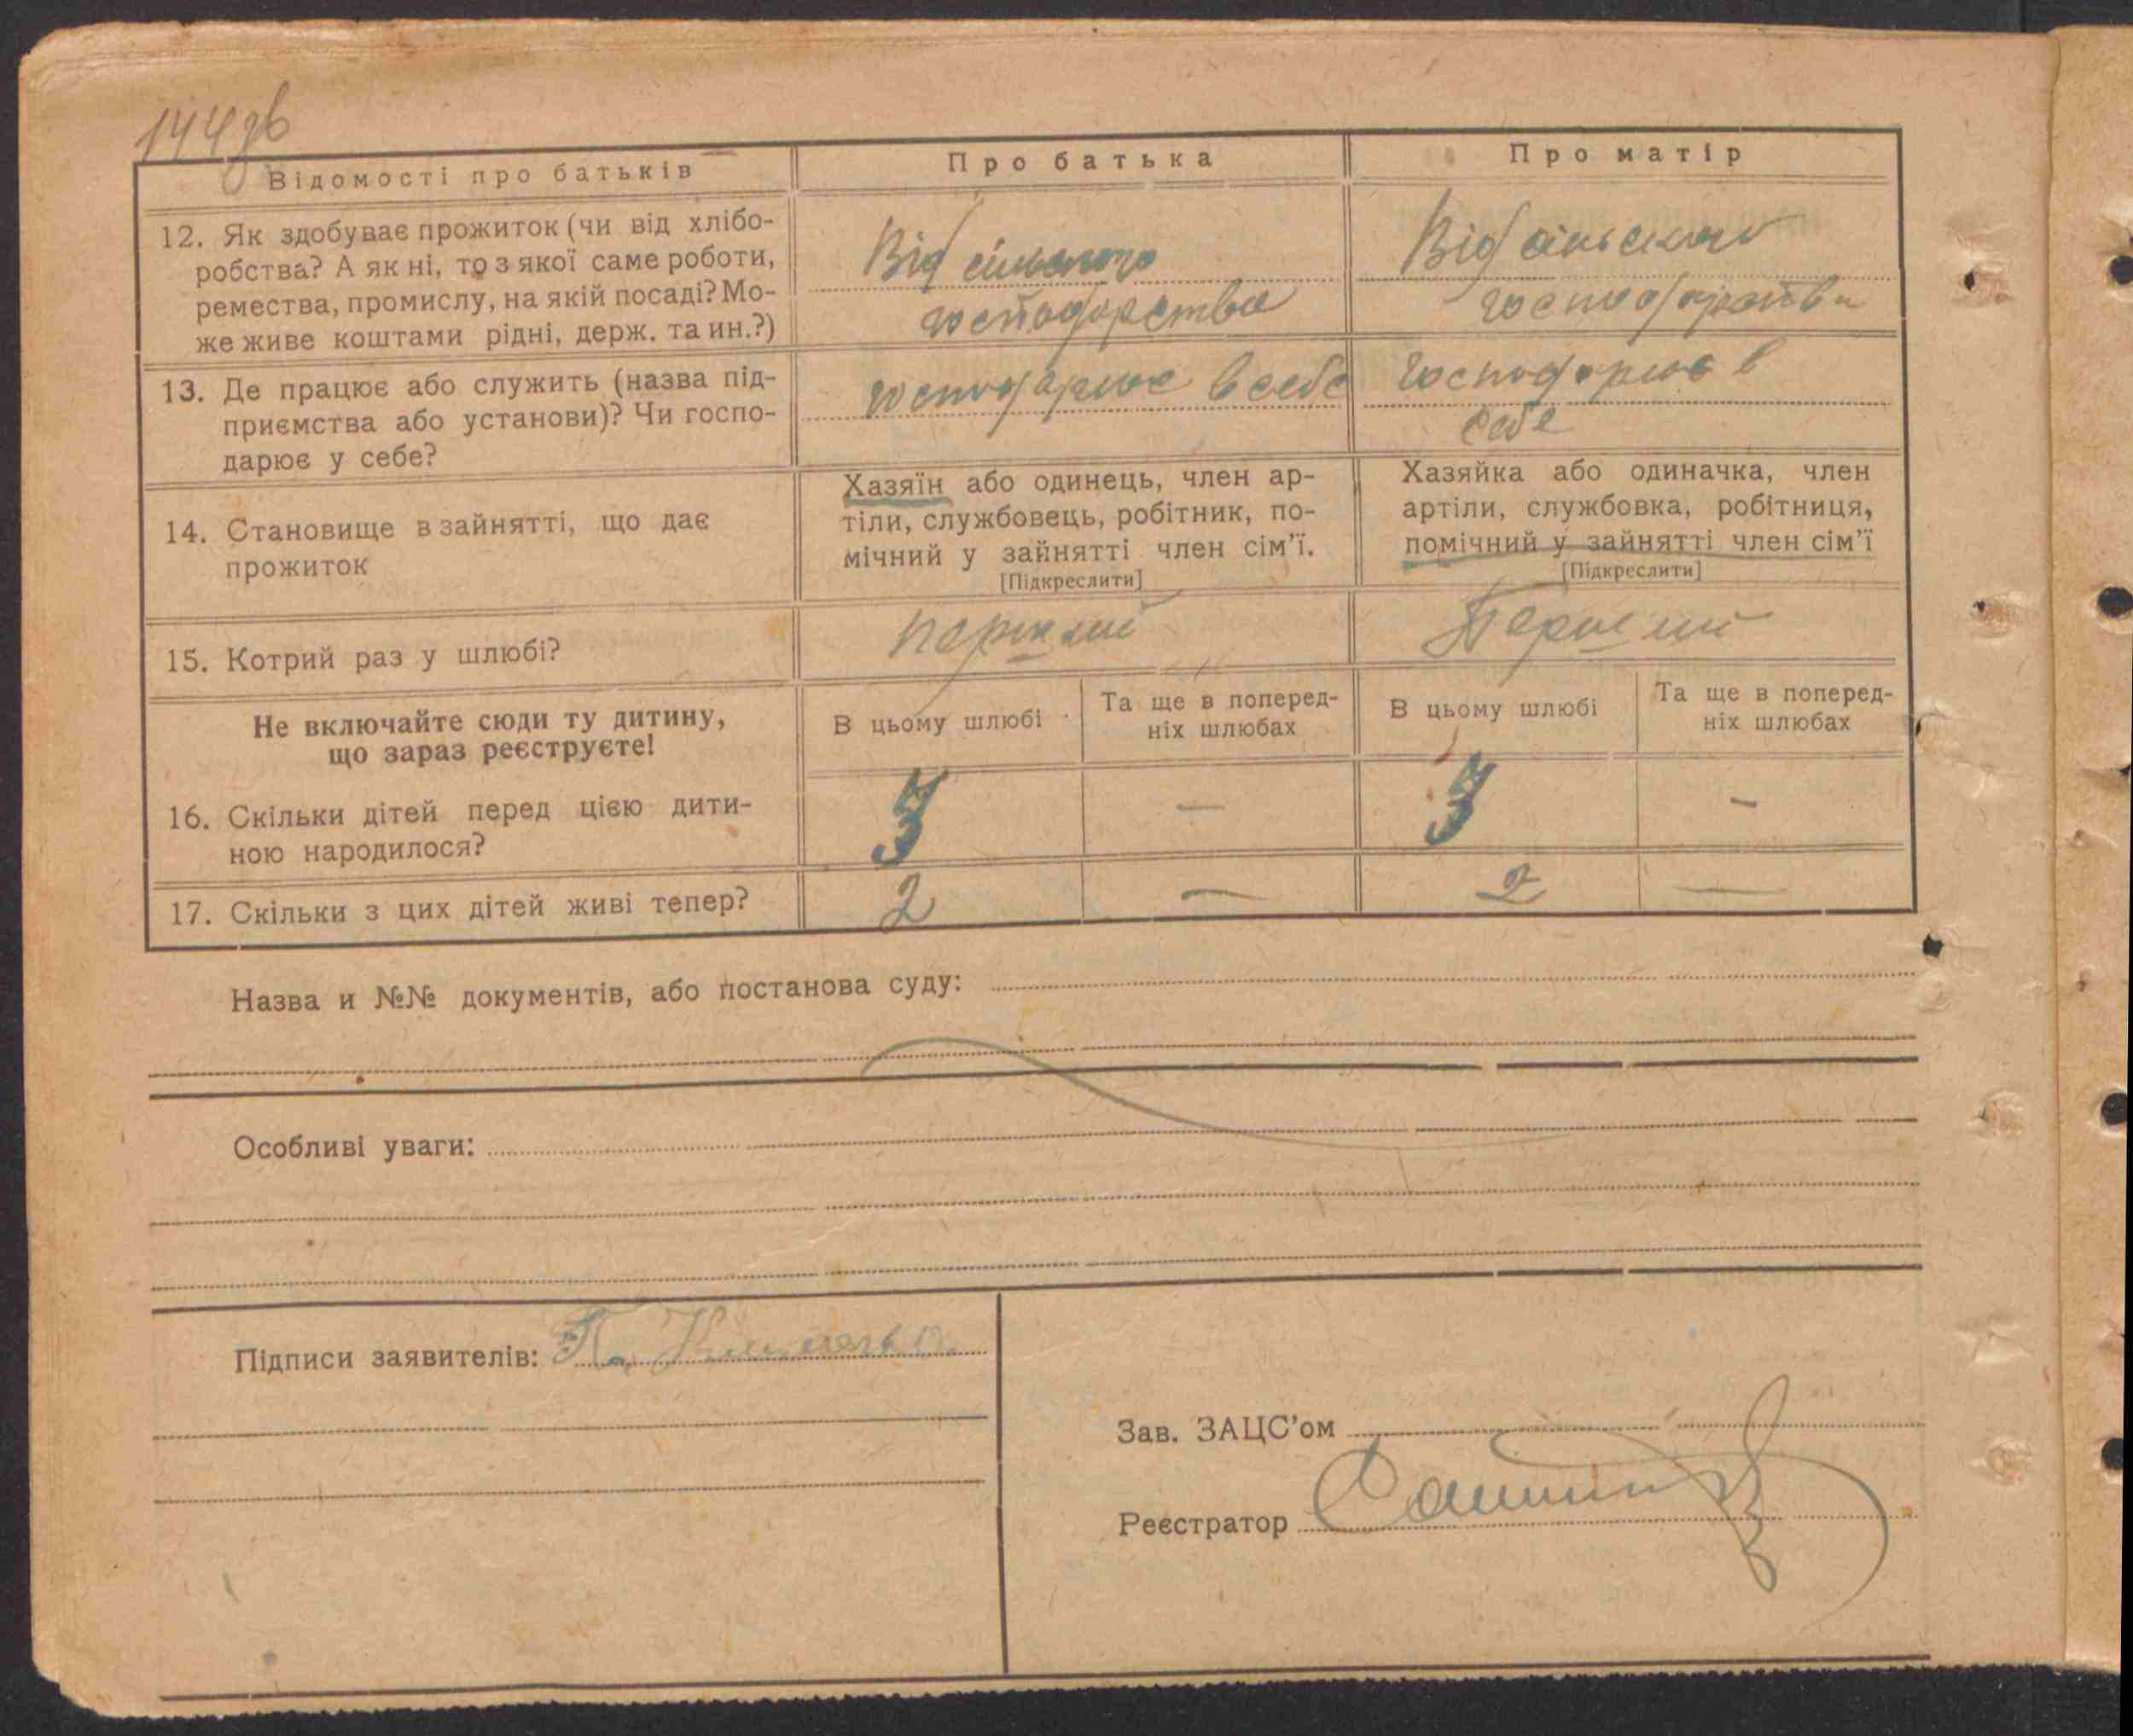 144зв
Відомості про батьків
Про батька
Про матір
12. Як здобуває прожиток (чи від хлібо-
робства? А як ні, то з якої саме роботи,
ремества, промислу, на якій посаді? Мо-
же живе коштами рідні, держ. та ин.?)
Від сільського
господарства
Від сільського
господарства
13. Де працює або служить (назва під-
приємства або установи)? Чи госпо-
дарює у себе?
господарює в себе
господарює в
себе
14. Становище в зайнятті, що дає
прожиток
Хазяїн або одинець, член ар-
тіли, службовець, робітник, по-
мічний у зайнятті член сім'ї.
[Підкреслити]
Хазяйка або одиначка, член
артіли, службовка, робітниця,
помічний у зайнятті член сім'ї
[Підкреслити]
15. Котрий раз у шлюбі?
перший
Перший
Не включайте сюди ту дитину,
що зараз реєструєте!
В цьому шлюбі
Та ще в поперед-
ніх шлюбах
В цьому шлюбі
Та ще в поперед-
ніх шлюбах
16. Скільки дітей перед цією дити-
ною народилося?
—
—
17. Скільки з цих дітей живі тепер?
2
—
2
—
Назва и №№ документів, або постанова суду:
Особливі уваги:
Підписи заявителів:
Зав. ЗАЦС'ом
Реєстратор